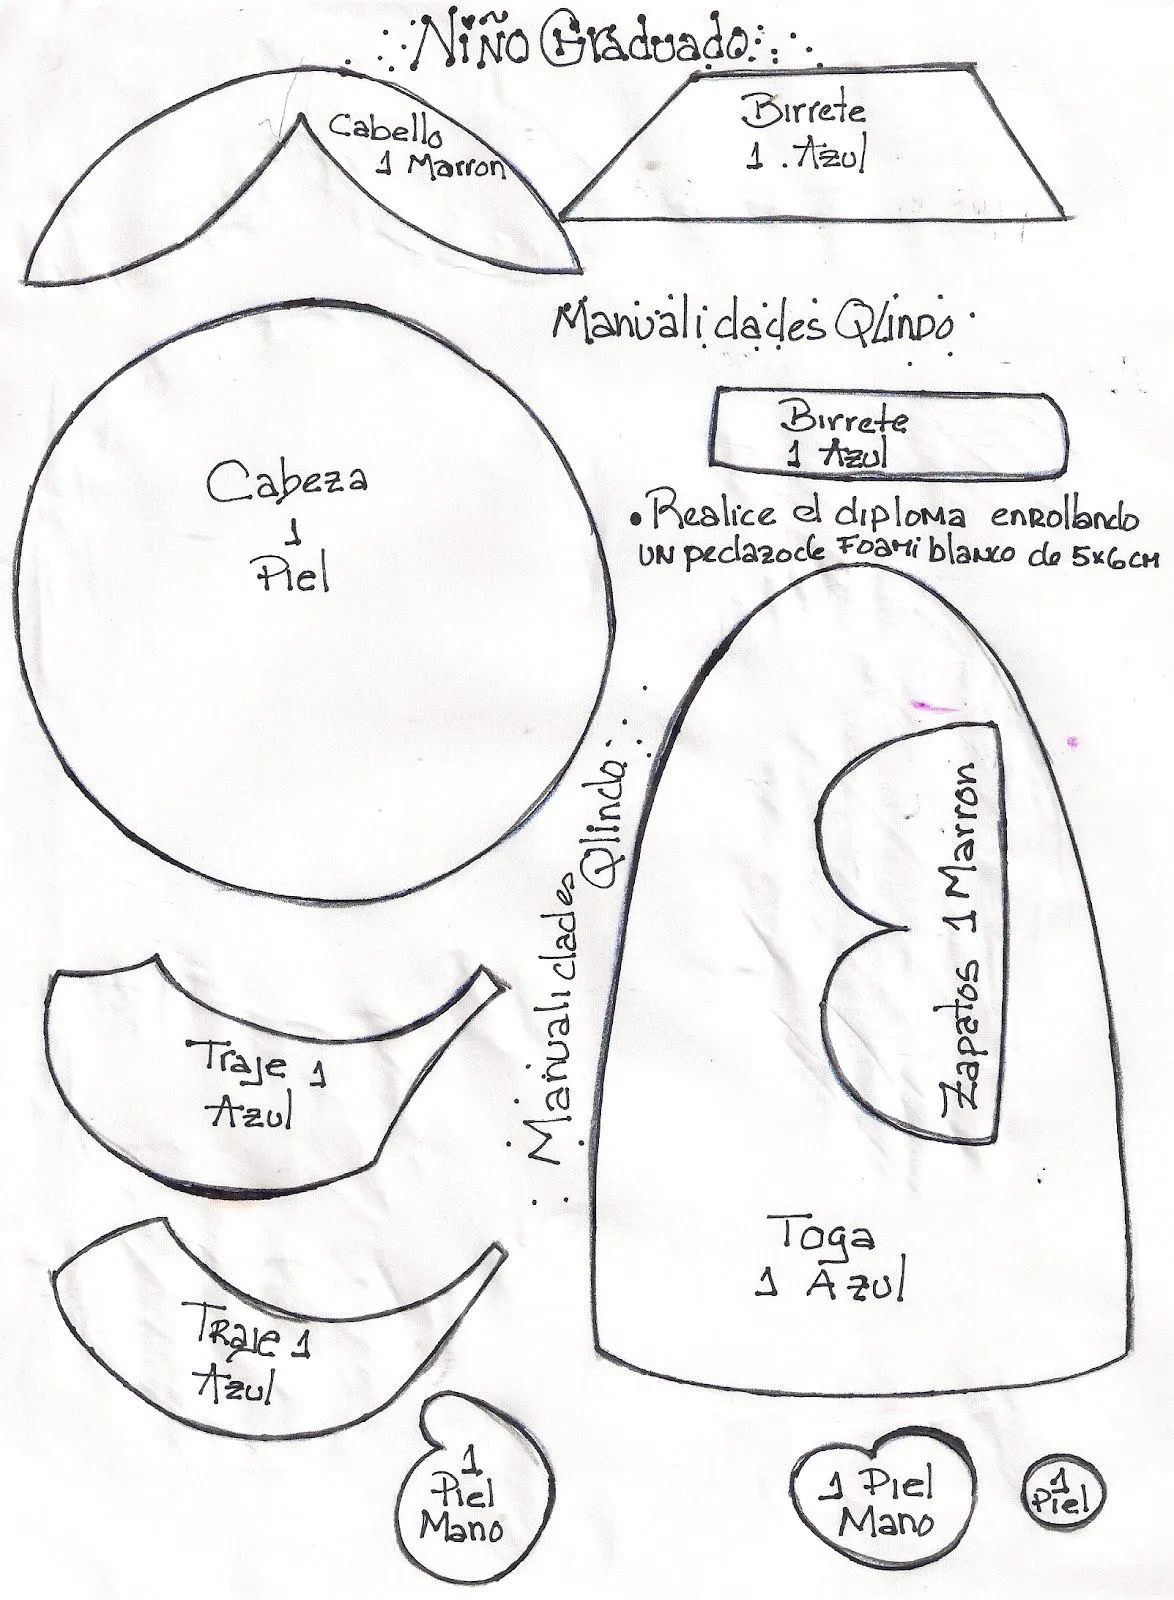 Niño Graduado
Cabello
1 Marron
Birrete
1 . Azul
Manualidades QLindo
Birrete
1 Azul
• Realice el diploma enrollando
un pedazo de Foami blanco de 5x6cm
Cabeza
1
Piel
Manualidades
Qlindo
Zapatos 1 Marron
Traje 1
Azul
Toga
1 Azul
Traje 1
Azul
1
Piel
Mano
1 Piel
Mano
1
Piel